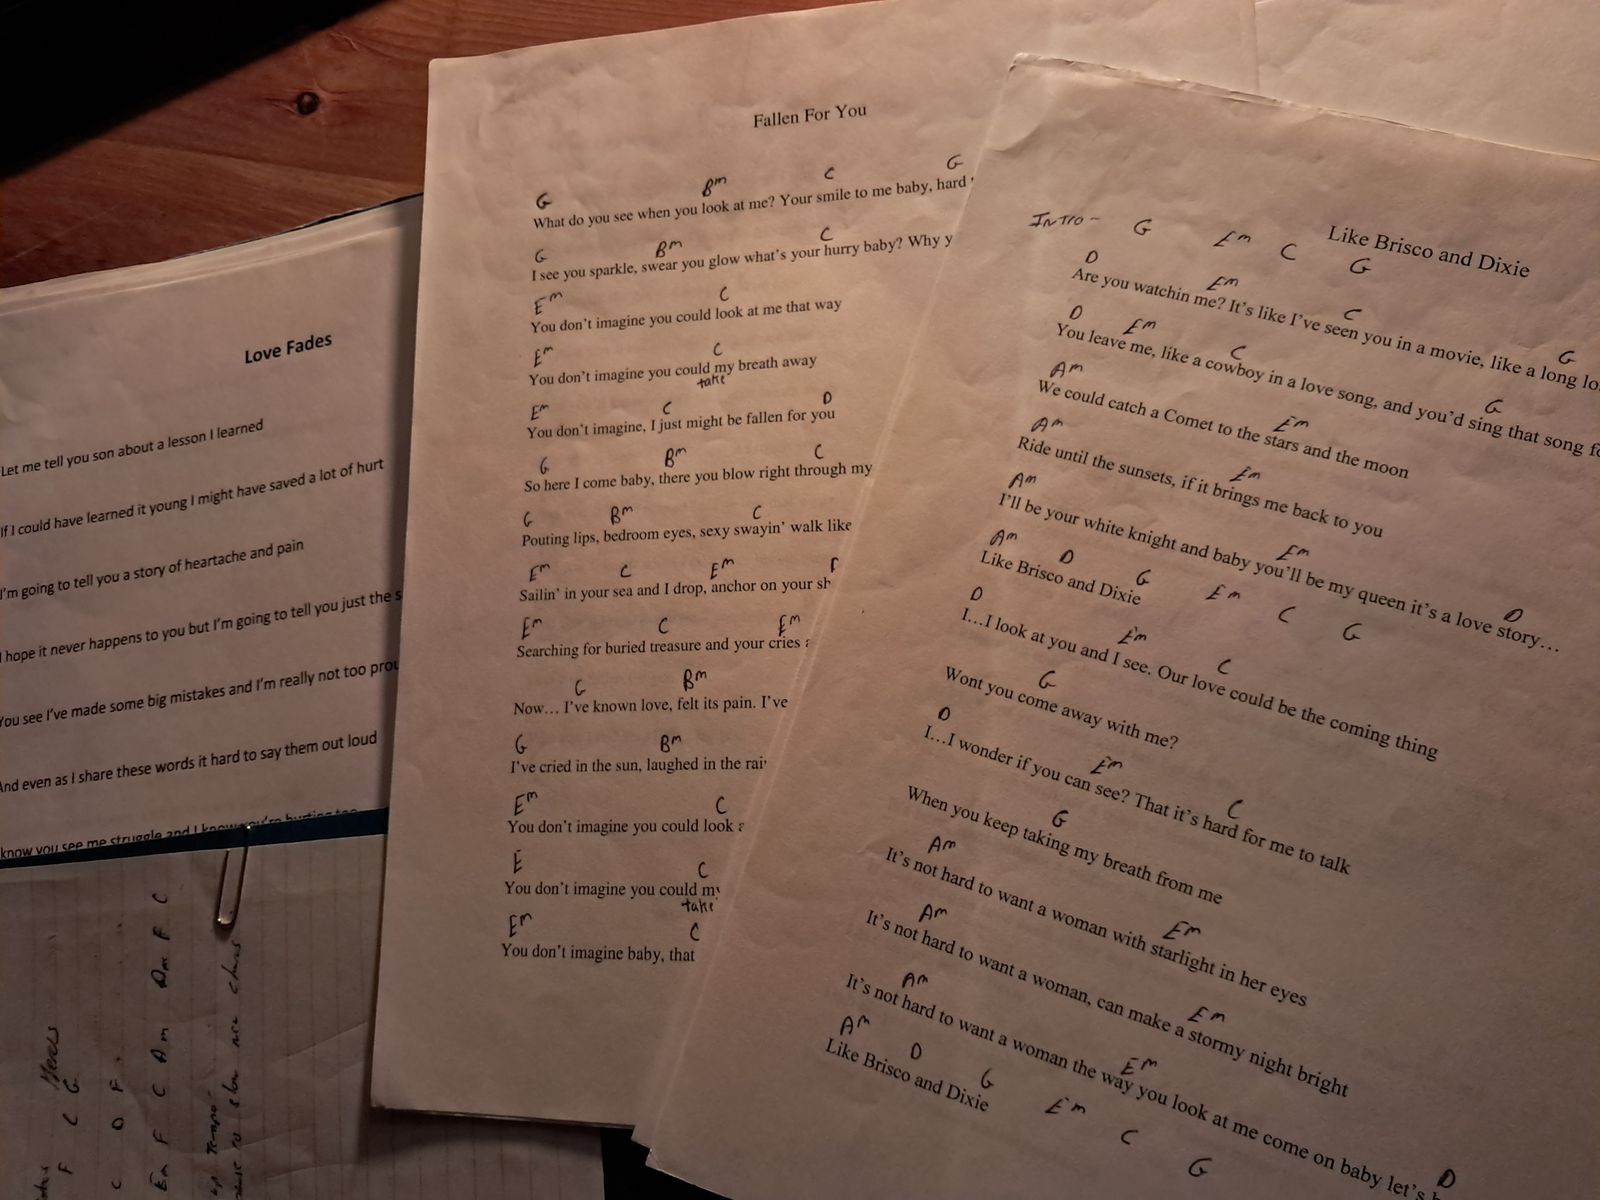 Love Fades
Let me tell you son about a lesson I learned
If I could have learned it young I might have saved a lot of hurt
I'm going to tell you a story of heartache and pain
I hope it never happens to you but I'm going to tell you just the s
You see I've made some big mistakes and I'm really not too prou
And even as I share these words it hard to say them out loud
know you see me struggle and I know you're hurting too
F C G
C D F
Em F C Am Am F C
Tempo
Fallen For You
G Bm C G
What do you see when you look at me? Your smile to me baby, hard
G Bm C
I see you sparkle, swear you glow what's your hurry baby? Why y
Em C
You don't imagine you could look at me that way
Em C
You don't imagine you could my breath away
take
Em C D
You don't imagine, I just might be fallen for you
G Bm C
So here I come baby, there you blow right through my
G Bm C
Pouting lips, bedroom eyes, sexy swayin' walk like
Em C Em
Sailin' in your sea and I drop, anchor on your sh
Em C Em
Searching for buried treasure and your cries
G Bm
Now… I've known love, felt its pain. I've
G Bm
I've cried in the sun, laughed in the rai
Em C
You don't imagine you could look
E C
You don't imagine you could my
take
Em C
You don't imagine baby, that
Like Brisco and Dixie
INTRO- G Em C G
D Em C G
Are you watchin me? It's like I've seen you in a movie, like a long lo
D Em C G
You leave me, like a cowboy in a love song, and you'd sing that song fo
Am Em
We could catch a Comet to the stars and the moon
Am Em
Ride until the sunsets, if it brings me back to you
Am Em D
I'll be your white knight and baby you'll be my queen it's a love story…
Am D G Em C G
Like Brisco and Dixie
D Em C
I…I look at you and I see. Our love could be the coming thing
G
Wont you come away with me?
D Em C
I…I wonder if you can see? That it's hard for me to talk
G
When you keep taking my breath from me
Am Em
It's not hard to want a woman with starlight in her eyes
Am Em
It's not hard to want a woman, can make a stormy night bright
Am Em D
It's not hard to want a woman the way you look at me come on baby let's
Am D G Em C G
Like Brisco and Dixie